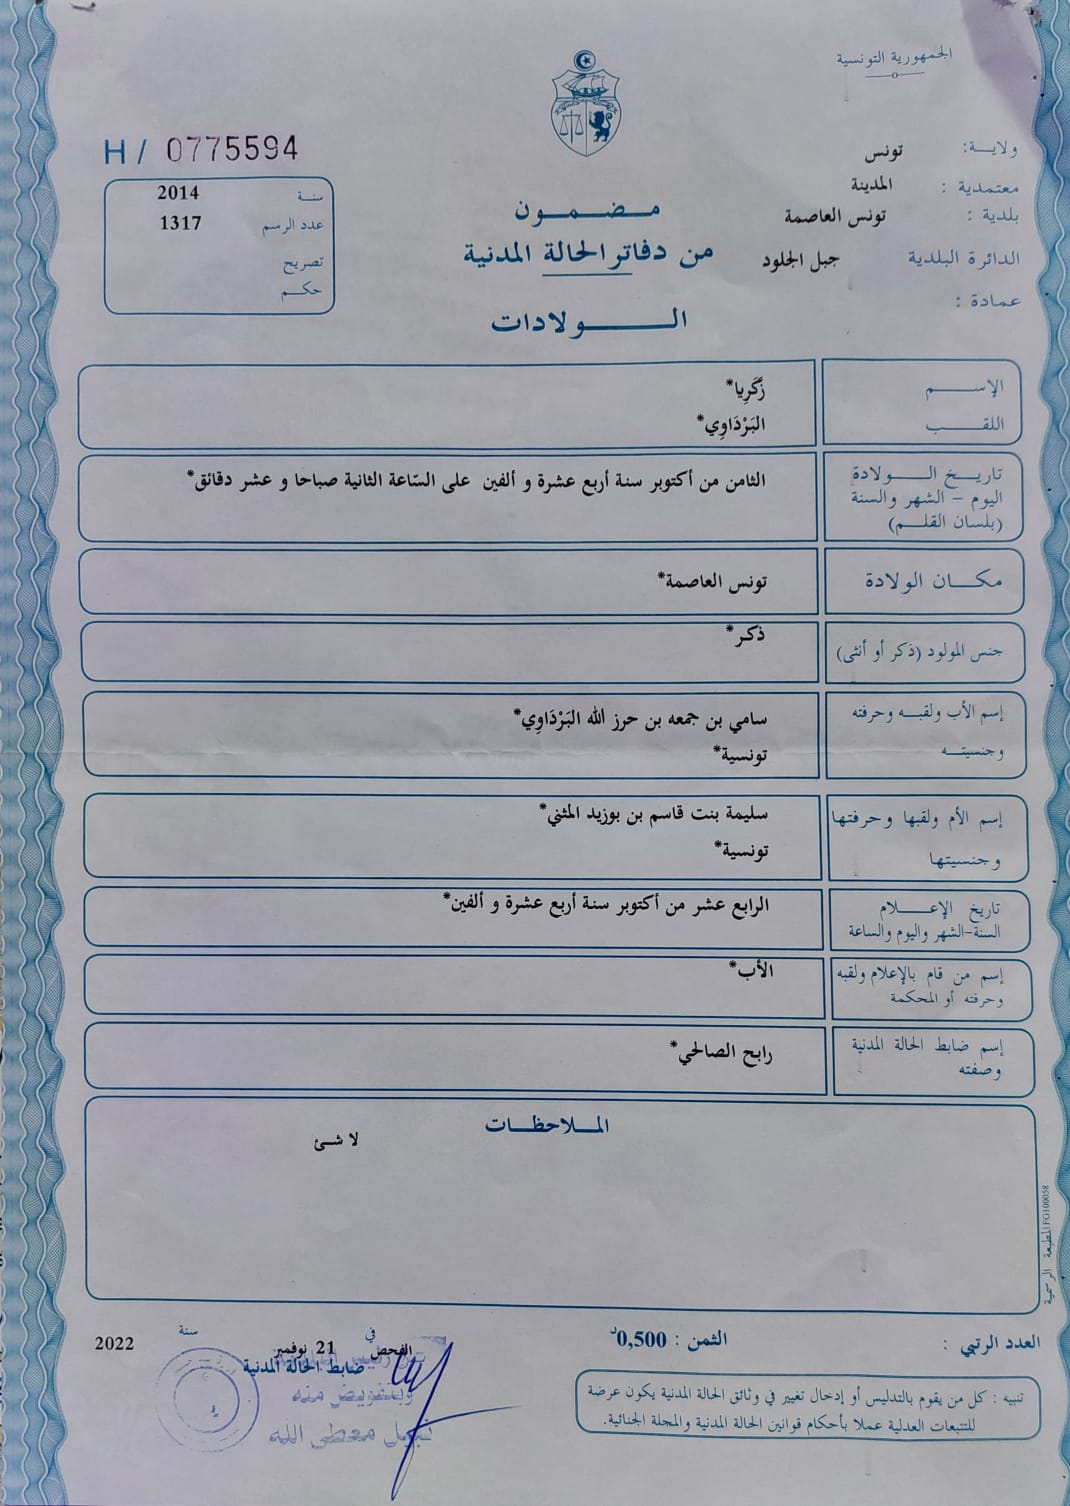 الجمهورية التونسية
ولاية: تونس
معتمدية : المدينة
بلدية : تونس العاصمة
الدائرة البلدية جبل الجلود
عمادة :
H / 0775594
سنة 2014
عدد الرسم 1317
تصريح
حكم
مضمون
من دفاتر الحالة المدنية
الولادات
الإسم زَكَرِيا*
اللقب البَرْدَاوِي*
تاريخ الولادة
اليوم - الشهر والسنة
(بلسان القلم)
الثامن من أكتوبر سنة أربع عشرة و ألفين على السّاعة الثانية صباحا و عشر دقائق*
مكان الولادة تونس العاصمة*
جنس المولود (ذكر أو أنثى) ذكر*
إسم الأب ولقبه وحرفته
وجنسيته
سامي بن جمعه بن حرز الله البَرْدَاوِي*
تونسية*
إسم الأم ولقبها وحرفتها
وجنسيتها
سليمة بنت قاسم بن بوزيد المثني*
تونسية*
تاريخ الإعلام
السنة-الشهر واليوم والساعة
الرابع عشر من أكتوبر سنة أربع عشرة و ألفين*
إسم من قام بالإعلام ولقبه
وحرفته أو المحكمة
الأب*
إسم ضابط الحالة المدنية
وصفته
رابح الصالحي*
الملاحظات
لا شئ
المطبعة الرسمية FG100058
العدد الرتبي :
الثمن : 0,500د
الفحص في 21 نوفمبر سنة 2022
ضابط الحالة المدنية
وبتفويض منه
نبيل معطى الله
تنبيه : كل من يقوم بالتدليس أو إدخال تغيير في وثائق الحالة المدنية يكون عرضة
للتتبعات العدلية عملا بأحكام قوانين الحالة المدنية والمجلة الجنائية.